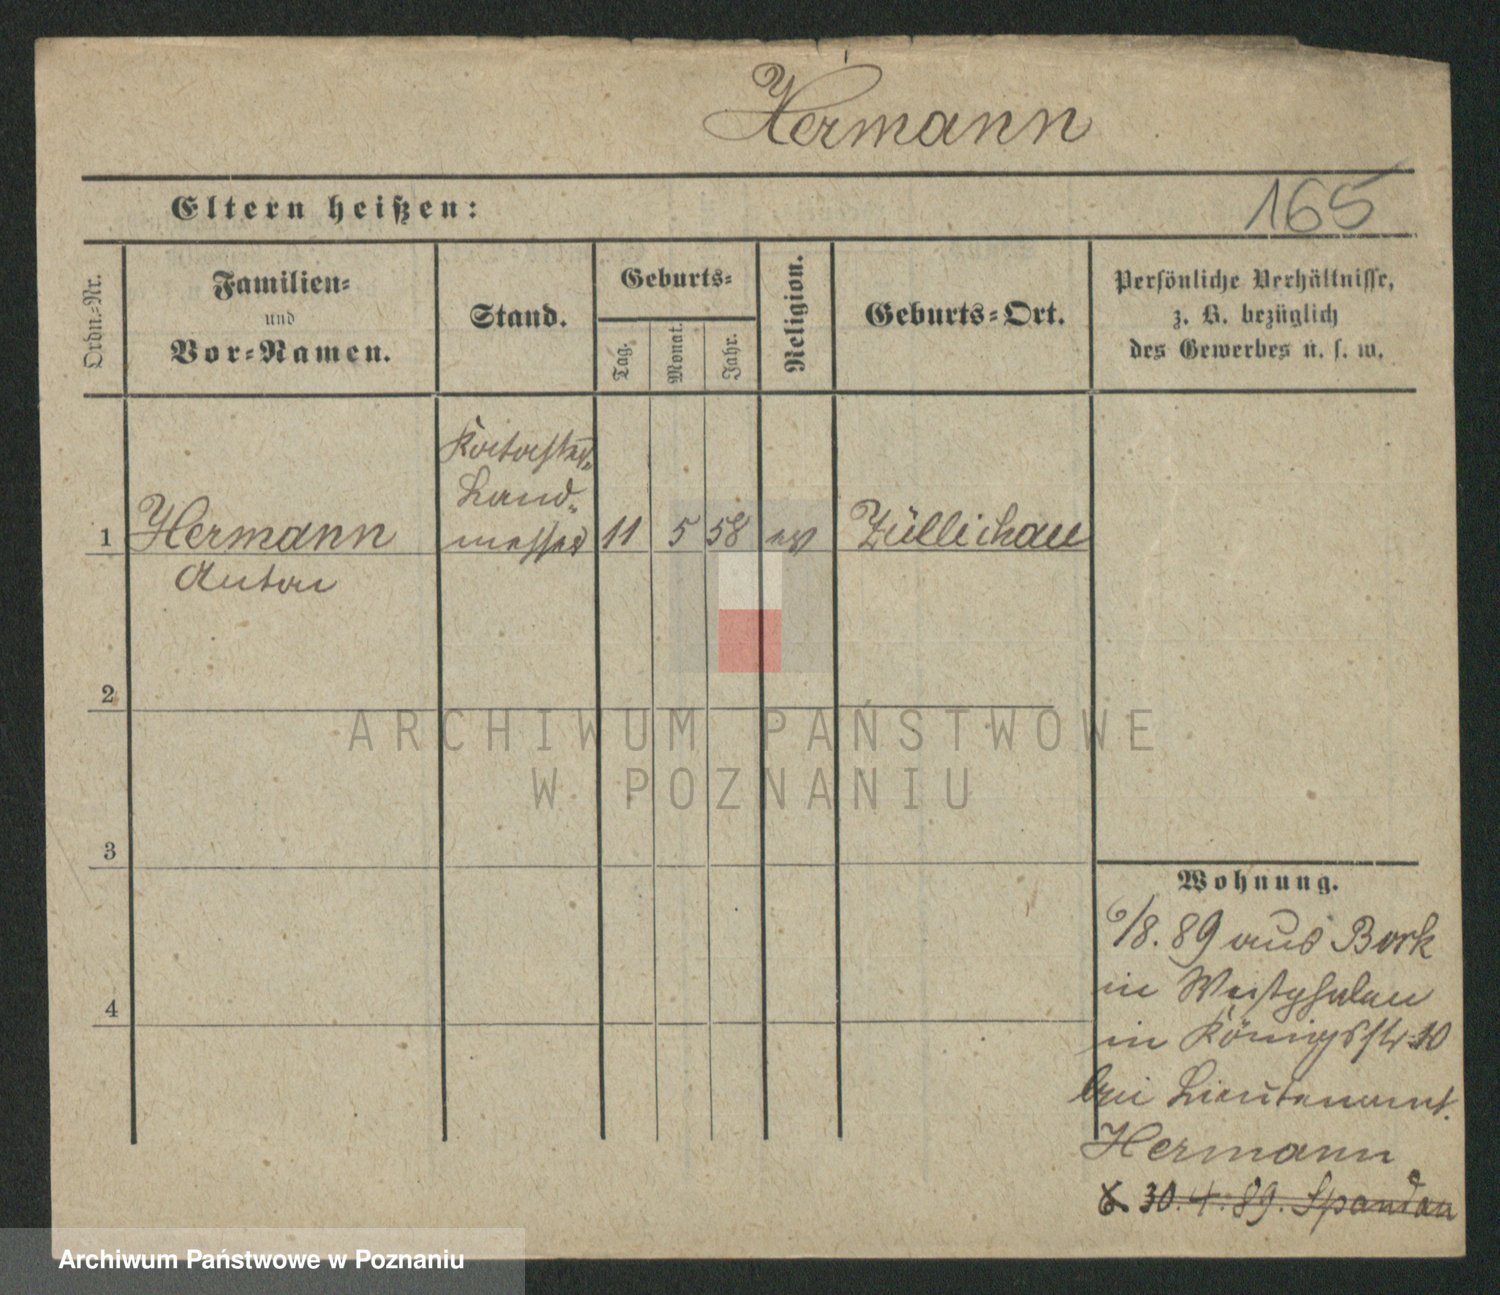 Hermann
Eltern heißen:
165
Ordn.-Nr.
Familien-
und
Vor-Namen.
Stand.
Geburts-
Tag.
Monat.
Jahr.
Religion.
Geburts-Ort.
Persönliche Verhältnisse,
z. B. bezüglich
des Gewerbes u. s. w.
Kataster-
Land-
1 Hermann messer 11 5 58 ev Züllichau
Anton
2
3
4
ARCHIWUM PAŃSTWOWE
W POZNANIU
Wohnung.
6/8.89 aus Bork
in Westphalen
in Königsstr 10
bei Lieutenant
Hermann
30.4.89. Spandau
Archiwum Państwowe w Poznaniu